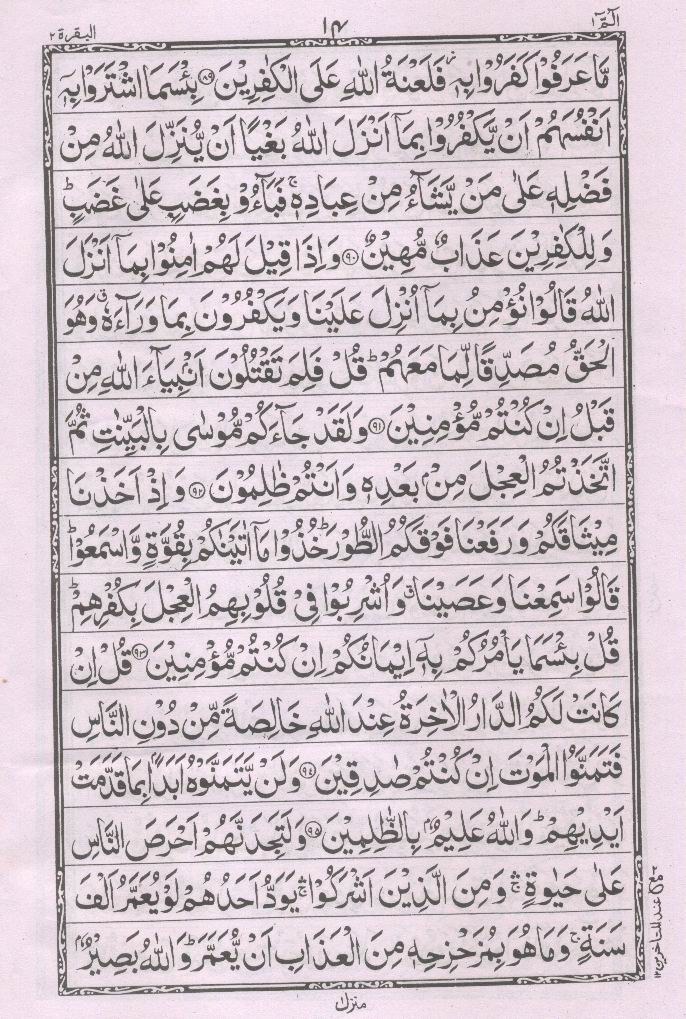 الٓمّٓ ١
١٤
البقرة ٢
مَّا عَرَفُوۡا كَفَرُوۡا بِهٖ ۫ فَلَعۡنَةُ اللّٰهِ عَلَى الۡكٰفِرِيۡنَ ﴿۸۹﴾ بِئۡسَمَا اشۡتَرَوۡا بِهٖۤ
اَنۡفُسَهُمۡ اَنۡ يَّكۡفُرُوۡا بِمَاۤ اَنۡزَلَ اللّٰهُ بَغۡيًا اَنۡ يُّنَزِّلَ اللّٰهُ مِنۡ
فَضۡلِهٖ عَلٰى مَنۡ يَّشَآءُ مِنۡ عِبَادِهٖ ۚ فَبَآءُوۡ بِغَضَبٍ عَلٰى غَضَبٍ ؕ
وَ لِلۡكٰفِرِيۡنَ عَذَابٌ مُّهِيۡنٌ ﴿۹۰﴾ وَ اِذَا قِيۡلَ لَهُمۡ اٰمِنُوۡا بِمَاۤ اَنۡزَلَ
اللّٰهُ قَالُوۡا نُؤۡمِنُ بِمَاۤ اُنۡزِلَ عَلَيۡنَا وَ يَكۡفُرُوۡنَ بِمَا وَرَآءَهٗ ٭ وَ هُوَ
الۡحَقُّ مُصَدِّقًا لِّمَا مَعَهُمۡ ؕ قُلۡ فَلِمَ تَقۡتُلُوۡنَ اَنۡۢبِيَآءَ اللّٰهِ مِنۡ
قَبۡلُ اِنۡ كُنۡتُمۡ مُّؤۡمِنِيۡنَ ﴿۹۱﴾ وَ لَقَدۡ جَآءَكُمۡ مُّوۡسٰى بِالۡبَيِّنٰتِ ثُمَّ
اتَّخَذۡتُمُ الۡعِجۡلَ مِنۡۢ بَعۡدِهٖ وَ اَنۡتُمۡ ظٰلِمُوۡنَ ﴿۹۲﴾ وَ اِذۡ اَخَذۡنَا
مِيۡثَاقَكُمۡ وَ رَفَعۡنَا فَوۡقَكُمُ الطُّوۡرَ ؕ خُذُوۡا مَاۤ اٰتَيۡنٰكُمۡ بِقُوَّةٍ وَّ اسۡمَعُوۡا ؕ
قَالُوۡا سَمِعۡنَا وَ عَصَيۡنَا ٭ وَ اُشۡرِبُوۡا فِىۡ قُلُوۡبِهِمُ الۡعِجۡلَ بِكُفۡرِهِمۡ ؕ
قُلۡ بِئۡسَمَا يَاۡمُرُكُمۡ بِهٖۤ اِيۡمَانُكُمۡ اِنۡ كُنۡتُمۡ مُّؤۡمِنِيۡنَ ﴿۹۳﴾ قُلۡ اِنۡ
كَانَتۡ لَكُمُ الدَّارُ الۡاٰخِرَةُ عِنۡدَ اللّٰهِ خَالِصَةً مِّنۡ دُوۡنِ النَّاسِ
فَتَمَنَّوُا الۡمَوۡتَ اِنۡ كُنۡتُمۡ صٰدِقِيۡنَ ﴿۹۴﴾ وَ لَنۡ يَّتَمَنَّوۡهُ اَبَدًۢا بِمَا قَدَّمَتۡ
اَيۡدِيۡهِمۡ ؕ وَ اللّٰهُ عَلِيۡمٌۢ بِالظّٰلِمِيۡنَ ﴿۹۵﴾ وَ لَتَجِدَنَّهُمۡ اَحۡرَصَ النَّاسِ
عَلٰى حَيٰوةٍ ۛۚ وَ مِنَ الَّذِيۡنَ اَشۡرَكُوۡا ۛۚ يَوَدُّ اَحَدُهُمۡ لَوۡ يُعَمَّرُ اَلۡفَ
سَنَةٍ ۚ وَ مَا هُوَ بِمُزَحۡزِحِهٖ مِنَ الۡعَذَابِ اَنۡ يُّعَمَّرَ ؕ وَ اللّٰهُ بَصِيۡرٌۢ
عند المتاخرين ١٢
منزل ١